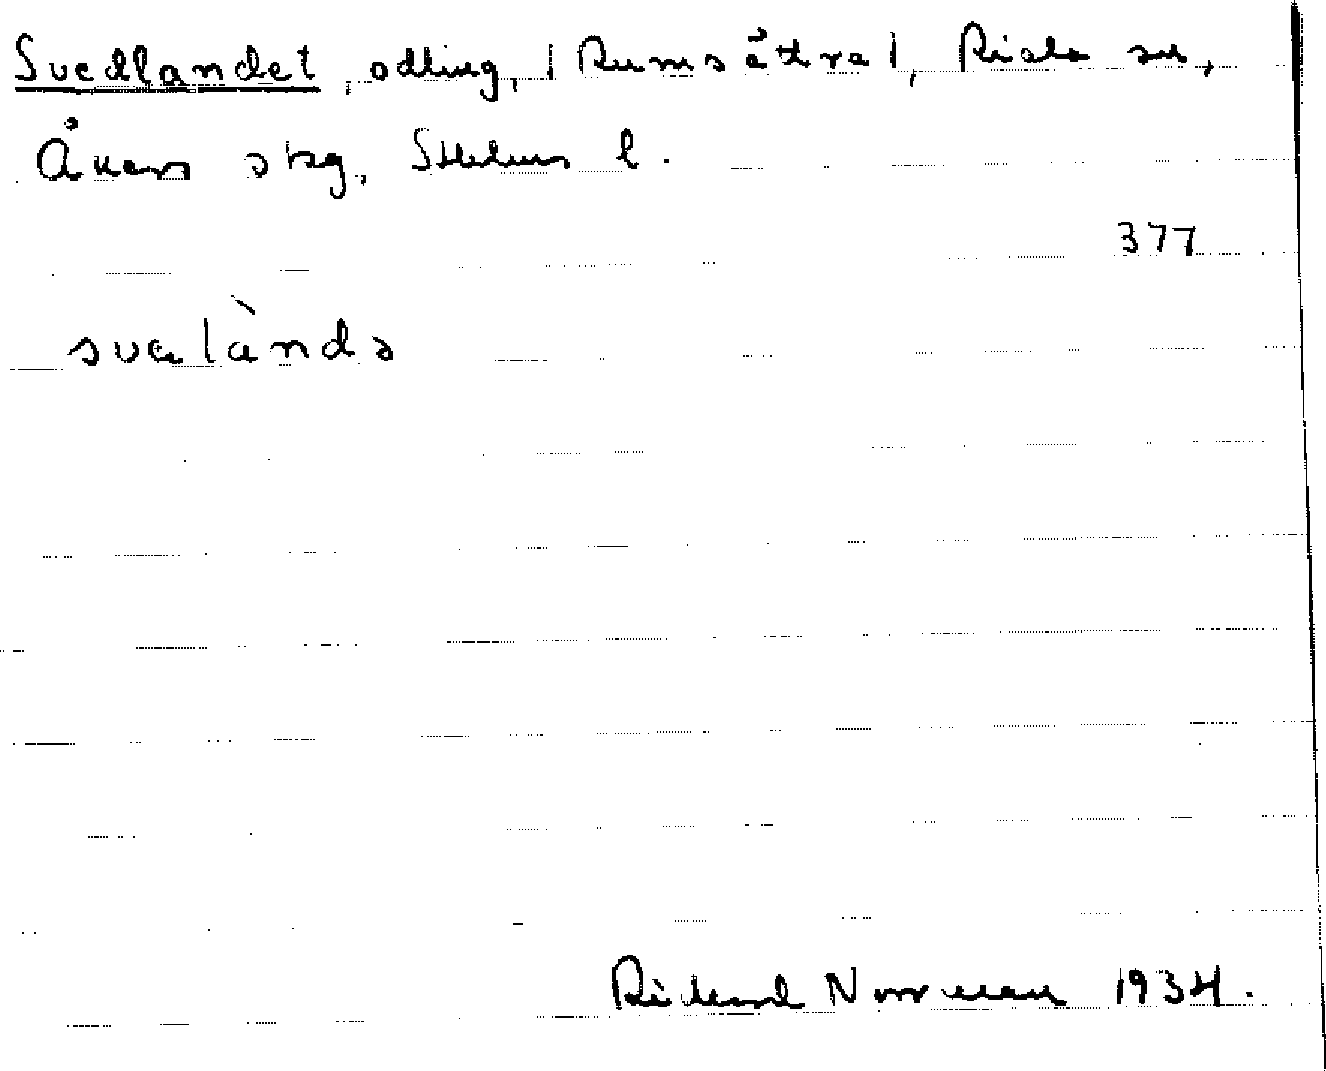 Svedlandet, odling, | Rumsätra |, Riala sn,
Åkers skg, Sthlms l.
377
svelànda
Rickard Norrman 1934.